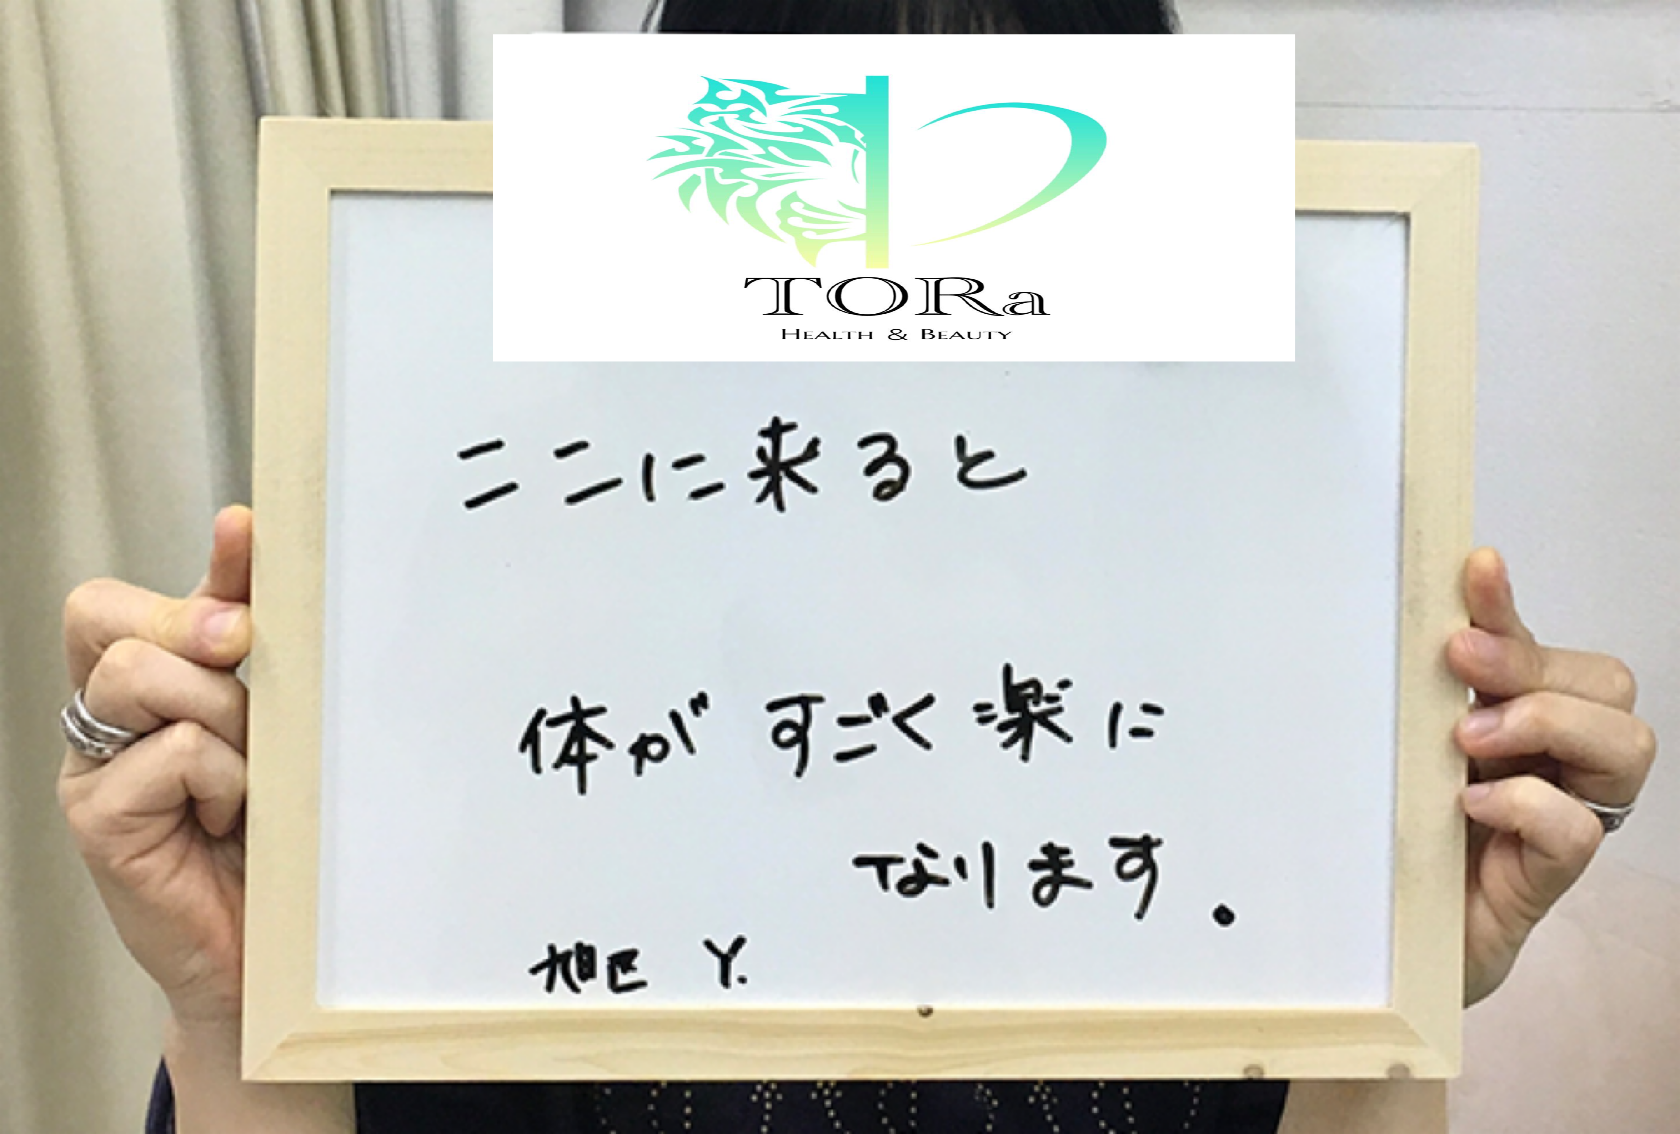 TORa
HEALTH & BEAUTY
ここに来ると
体がすごく楽に
なります。
旭区 Y.